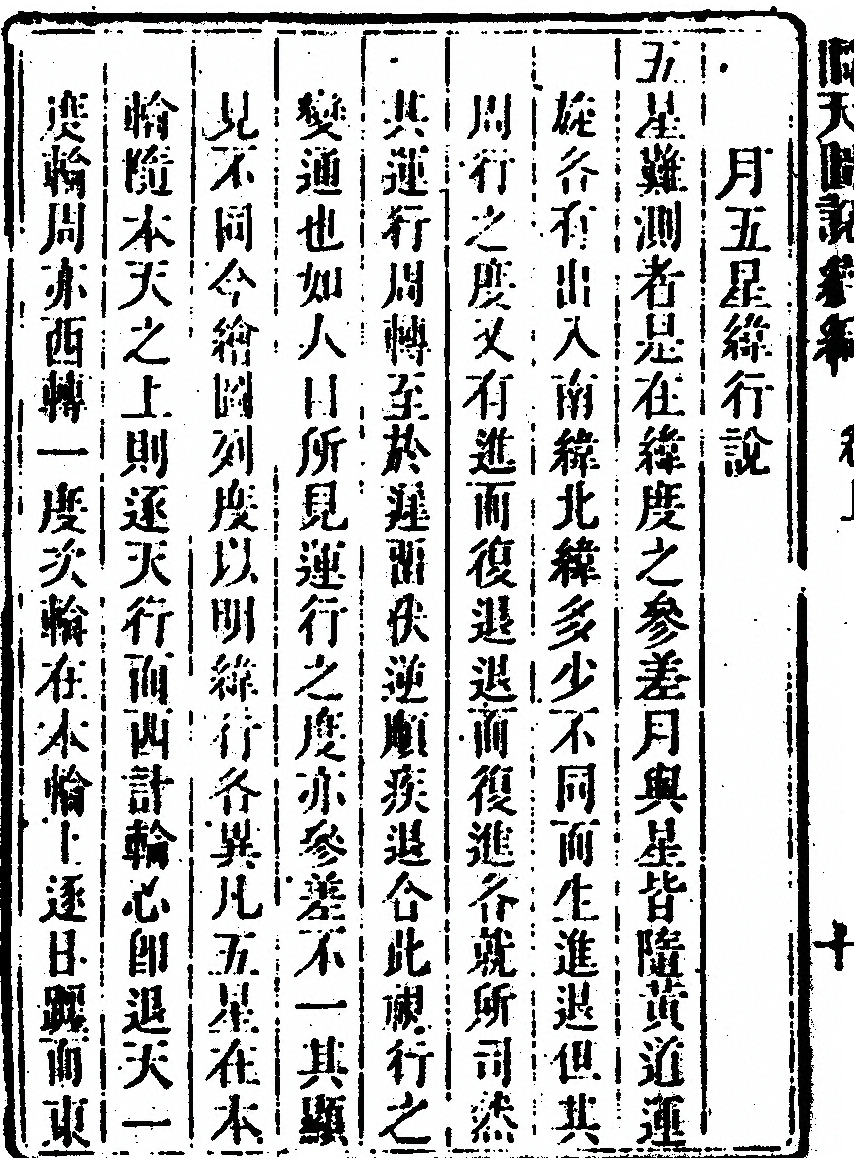 天圖說續編 卷上 十
月五星緯行說
五星難測者是在緯度之參差月與星皆隨黃道運
旋各有出入南緯北緯多少不同而生進退但其
周行之度又有進而復退退而復進各就所司然
其運行周轉至於遲畱伏逆順疾退合此視行之
變通也如人目所見運行之度亦參差不一其顯
見不同今繪圖列度以明緯行各異凡五星在本
輪隨本天之上則逐天行而西計輪心卽退天一
度輪周亦西轉一度次輪在本輪上逐日躔而東